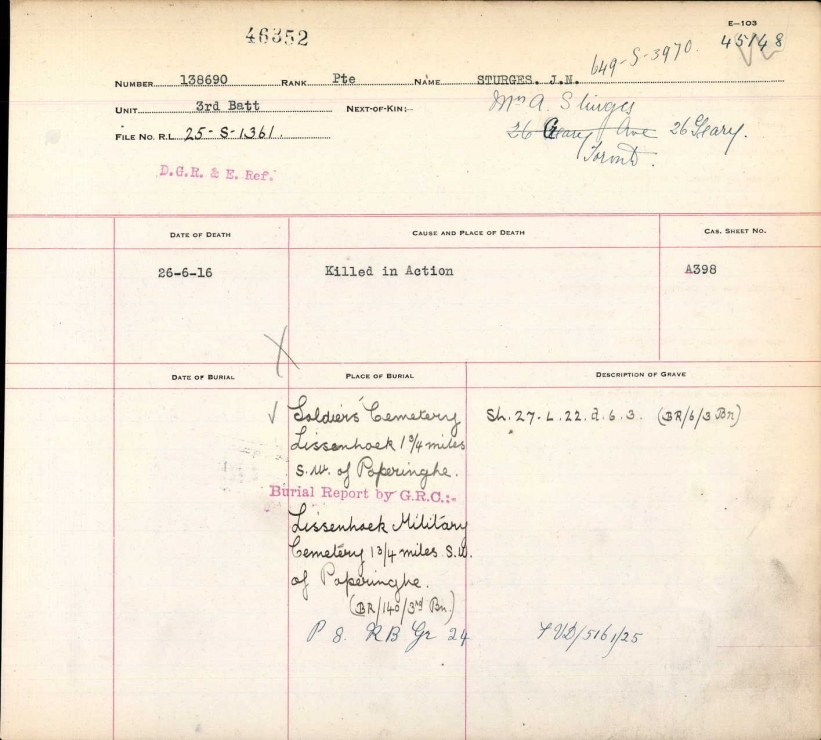 E—103
46352
45148
649-S-3970.
NUMBER 138690 RANK Pte NAME STURGES. J.N.
UNIT 3rd Batt NEXT-OF-KIN:— Mrs A. Sturges
FILE No. R.L. 25-S-1361. 26 Geary Ave 26 Geary.
Toronto.
D.G.R. & E. Ref.
DATE OF DEATH CAUSE AND PLACE OF DEATH CAS. SHEET NO.
26-6-16 Killed in Action A398
DATE OF BURIAL PLACE OF BURIAL DESCRIPTION OF GRAVE
Soldiers' Cemetery Sh. 27. L. 22. d. 6. 3. (BR/6/3 Bn)
Lissenhoek 1 3/4 miles
S.W. of Poperinghe.
Burial Report by G.R.C.:-
Lissenhoek Military
Cemetery 1 3/4 miles S.W.
of Poperinghe.
(BR/140/3rd Bn.)
P 8. R B Gr 24